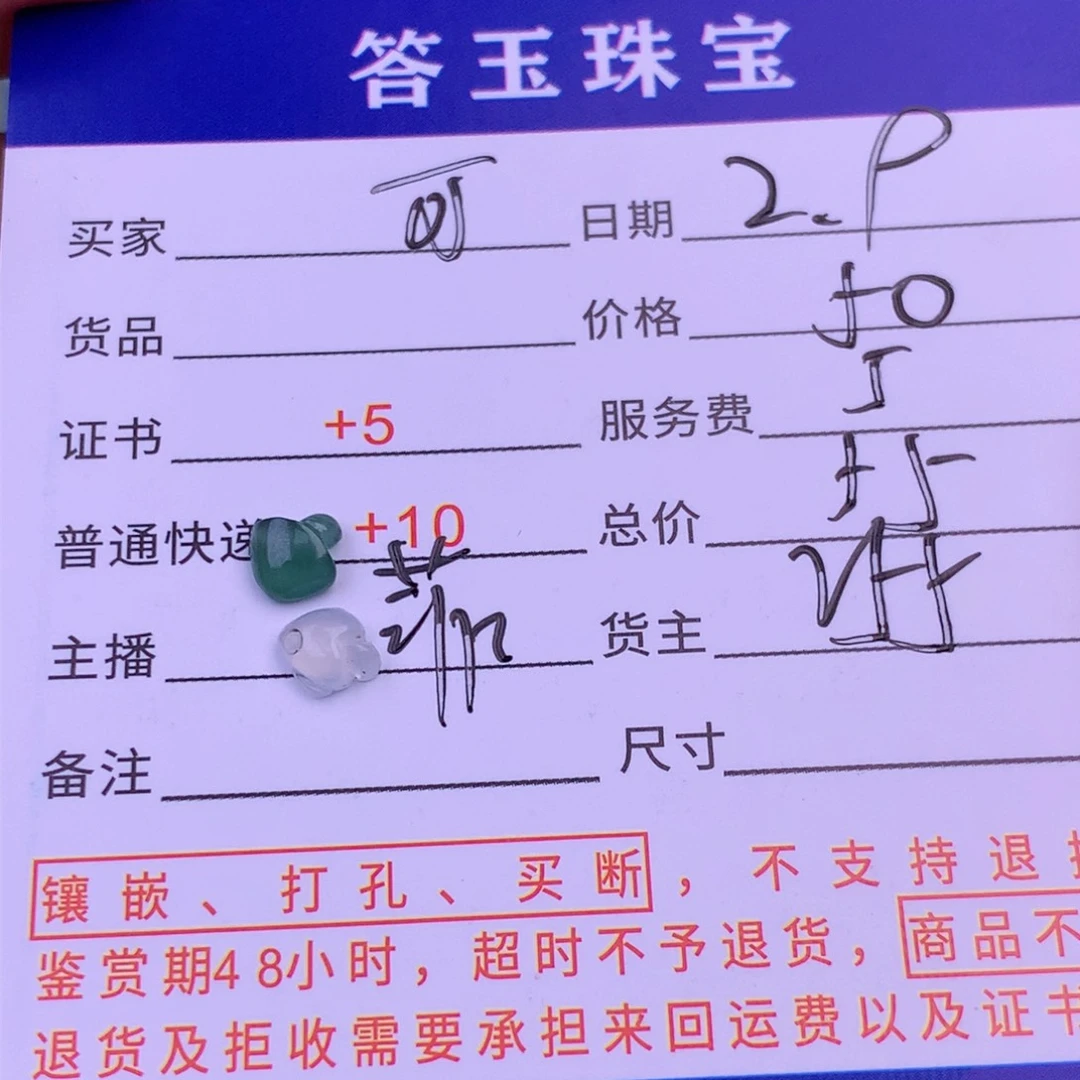 答玉珠宝
买家 可 日期 2.9
货品 价格 50
证书 +5 服务费 5
普通快递 +10 总价 55
主播 货主
备注 尺寸
镶嵌、打孔、买断，不支持退
鉴赏期48小时，超时不予退货，商品不
退货及拒收需要承担来回运费以及证书